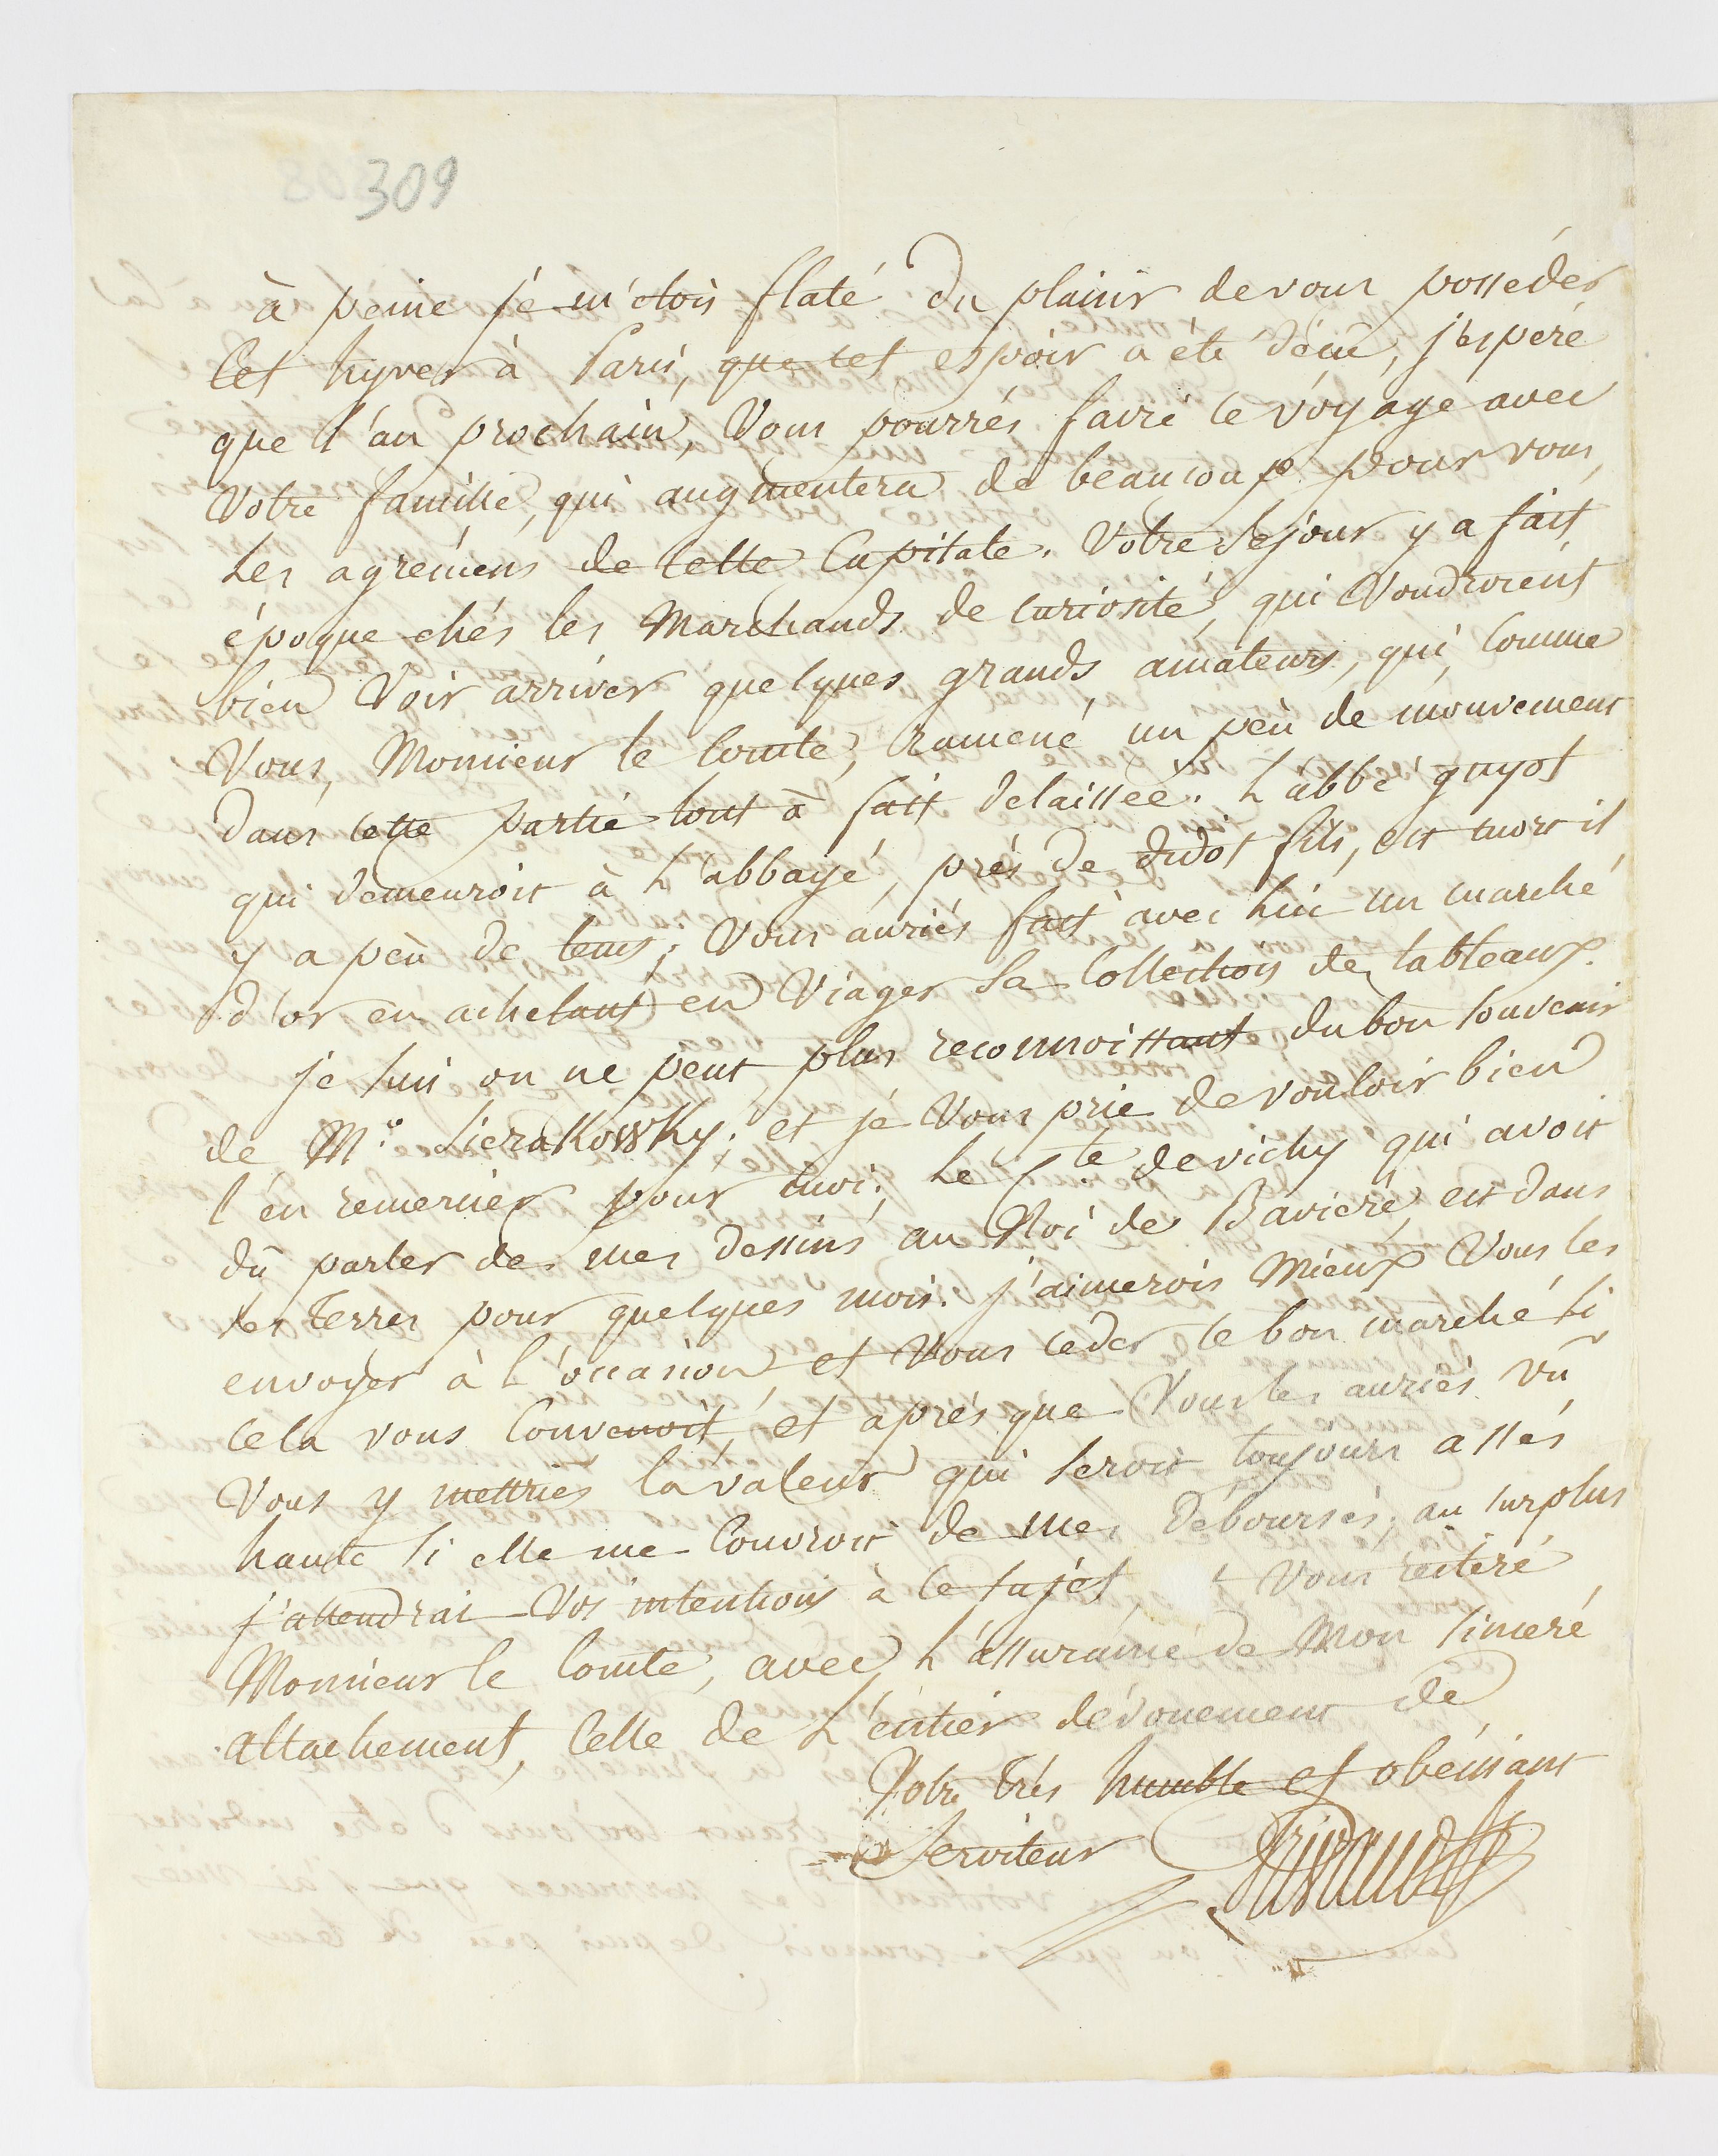 309
à peine je m'etois flaté du plaisir de vous posseder
Cet hyver à Paris, que cet espoir a eté décû, j'éspere
que l'an prochain, Vous pourrés faire le voyage avec
Votre famille, qui augmentera de beaucoup pour vous,
les agrémens de cette Capitale. Votre sejour y a fait
époque chés les Marchands de curiosité, qui Voudroient
bien Voir arriver quelques grands amateurs, qui, Comme
Vous, Monsieur le Comte, Ramene un peû de mouvement
dans cette partie tout à fait delaissée. L'abbé guyot
qui demeuroit à L'abbaye, près de didot fils, est mort il
y a peû de tems; Vous auriés fait avec Lui un marché
d'or en achetant en Viager Sa Collection de tableaux.
je suis on ne peut plus reconnoissant du bon souvenir
de Mr. Sierakowsky; et je Vous prie de vouloir bien
l'en remercier pour moi; Le Cte. de vichy qui avoit
dû parler de mes dessins au Roi de Baviere est dans
ses terres pour quelques mois. j'aimerois Mieux Vous les
envoyer à l'occasion et Vous ceder le bon marché si
cela vous Convenoit, et après que Vous les auriés vû
Vous y mettriés la valeur qui seroit toujours assés
haute si elle me Couvroit de mes Déboursés; au surplus
j'attendrai Vos intentions à ce sujet, Vous reitere
Monsieur le Comte, avec L'assurance de Mon sincere
attachement, Celle de L'entier dévouement de
Votre très humble et obéissant
Serviteur